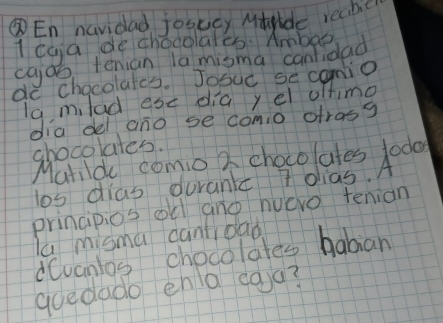 ② En navidad josuey Matilde recibieron
1 caja de chocolates. Ambas
cajas tenian la misma cantidad
de chocolates. Josue se comio
la mitad ese día y el ultimo
día del año se comio otras 9
chocolates.
Matilde comio 2 chocolates todos
los dias durante 7 dias. A
principios del ano nuevo tenian
la misma cantidad
¿Cuantos chocolates habian
quedado en la caja?